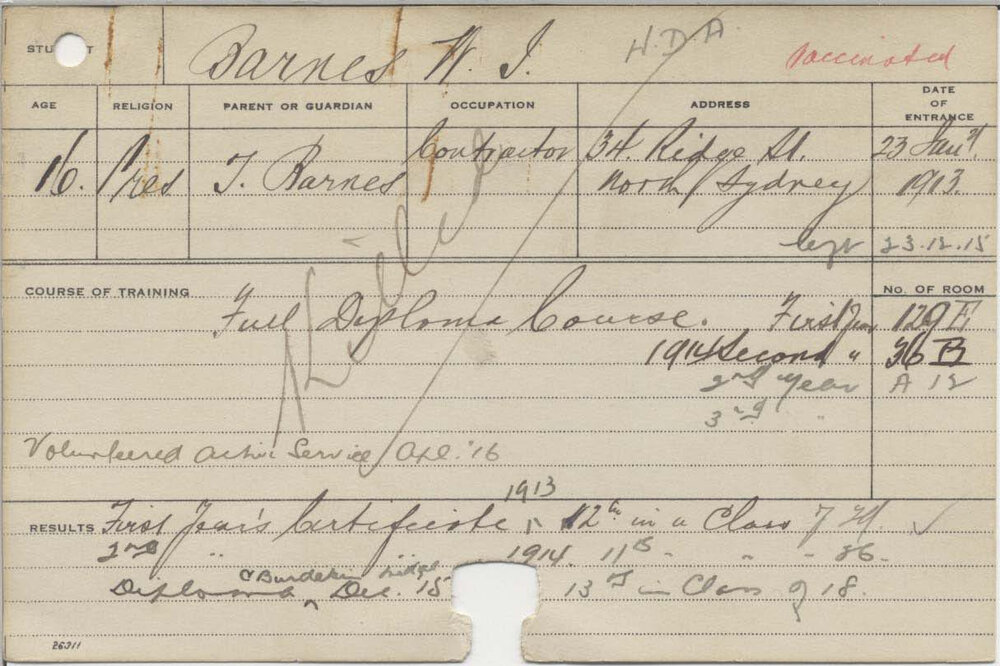 STUDENT Barnes W. J. H.D.A. Vaccinated
AGE RELIGION PARENT OR GUARDIAN OCCUPATION ADDRESS DATE OF ENTRANCE
16. Pres J. Barnes Contractor 34. Ridge St. 23 Jany.
North Sydney 1913.
left 23.12.15
Killed
COURSE OF TRAINING No. OF ROOM
Full Diploma Course. First Year 129 E
1914 Second " 36 B
2nd Year A 12
3rd "
Volunteered Active Service Apl. '16
1913
RESULTS First Year's Certificate 12th in a Class
2nd " " 1914. 11th " " " 36.
& Burdekin
Diploma Dec. 15 13th in Class of 18.
26311